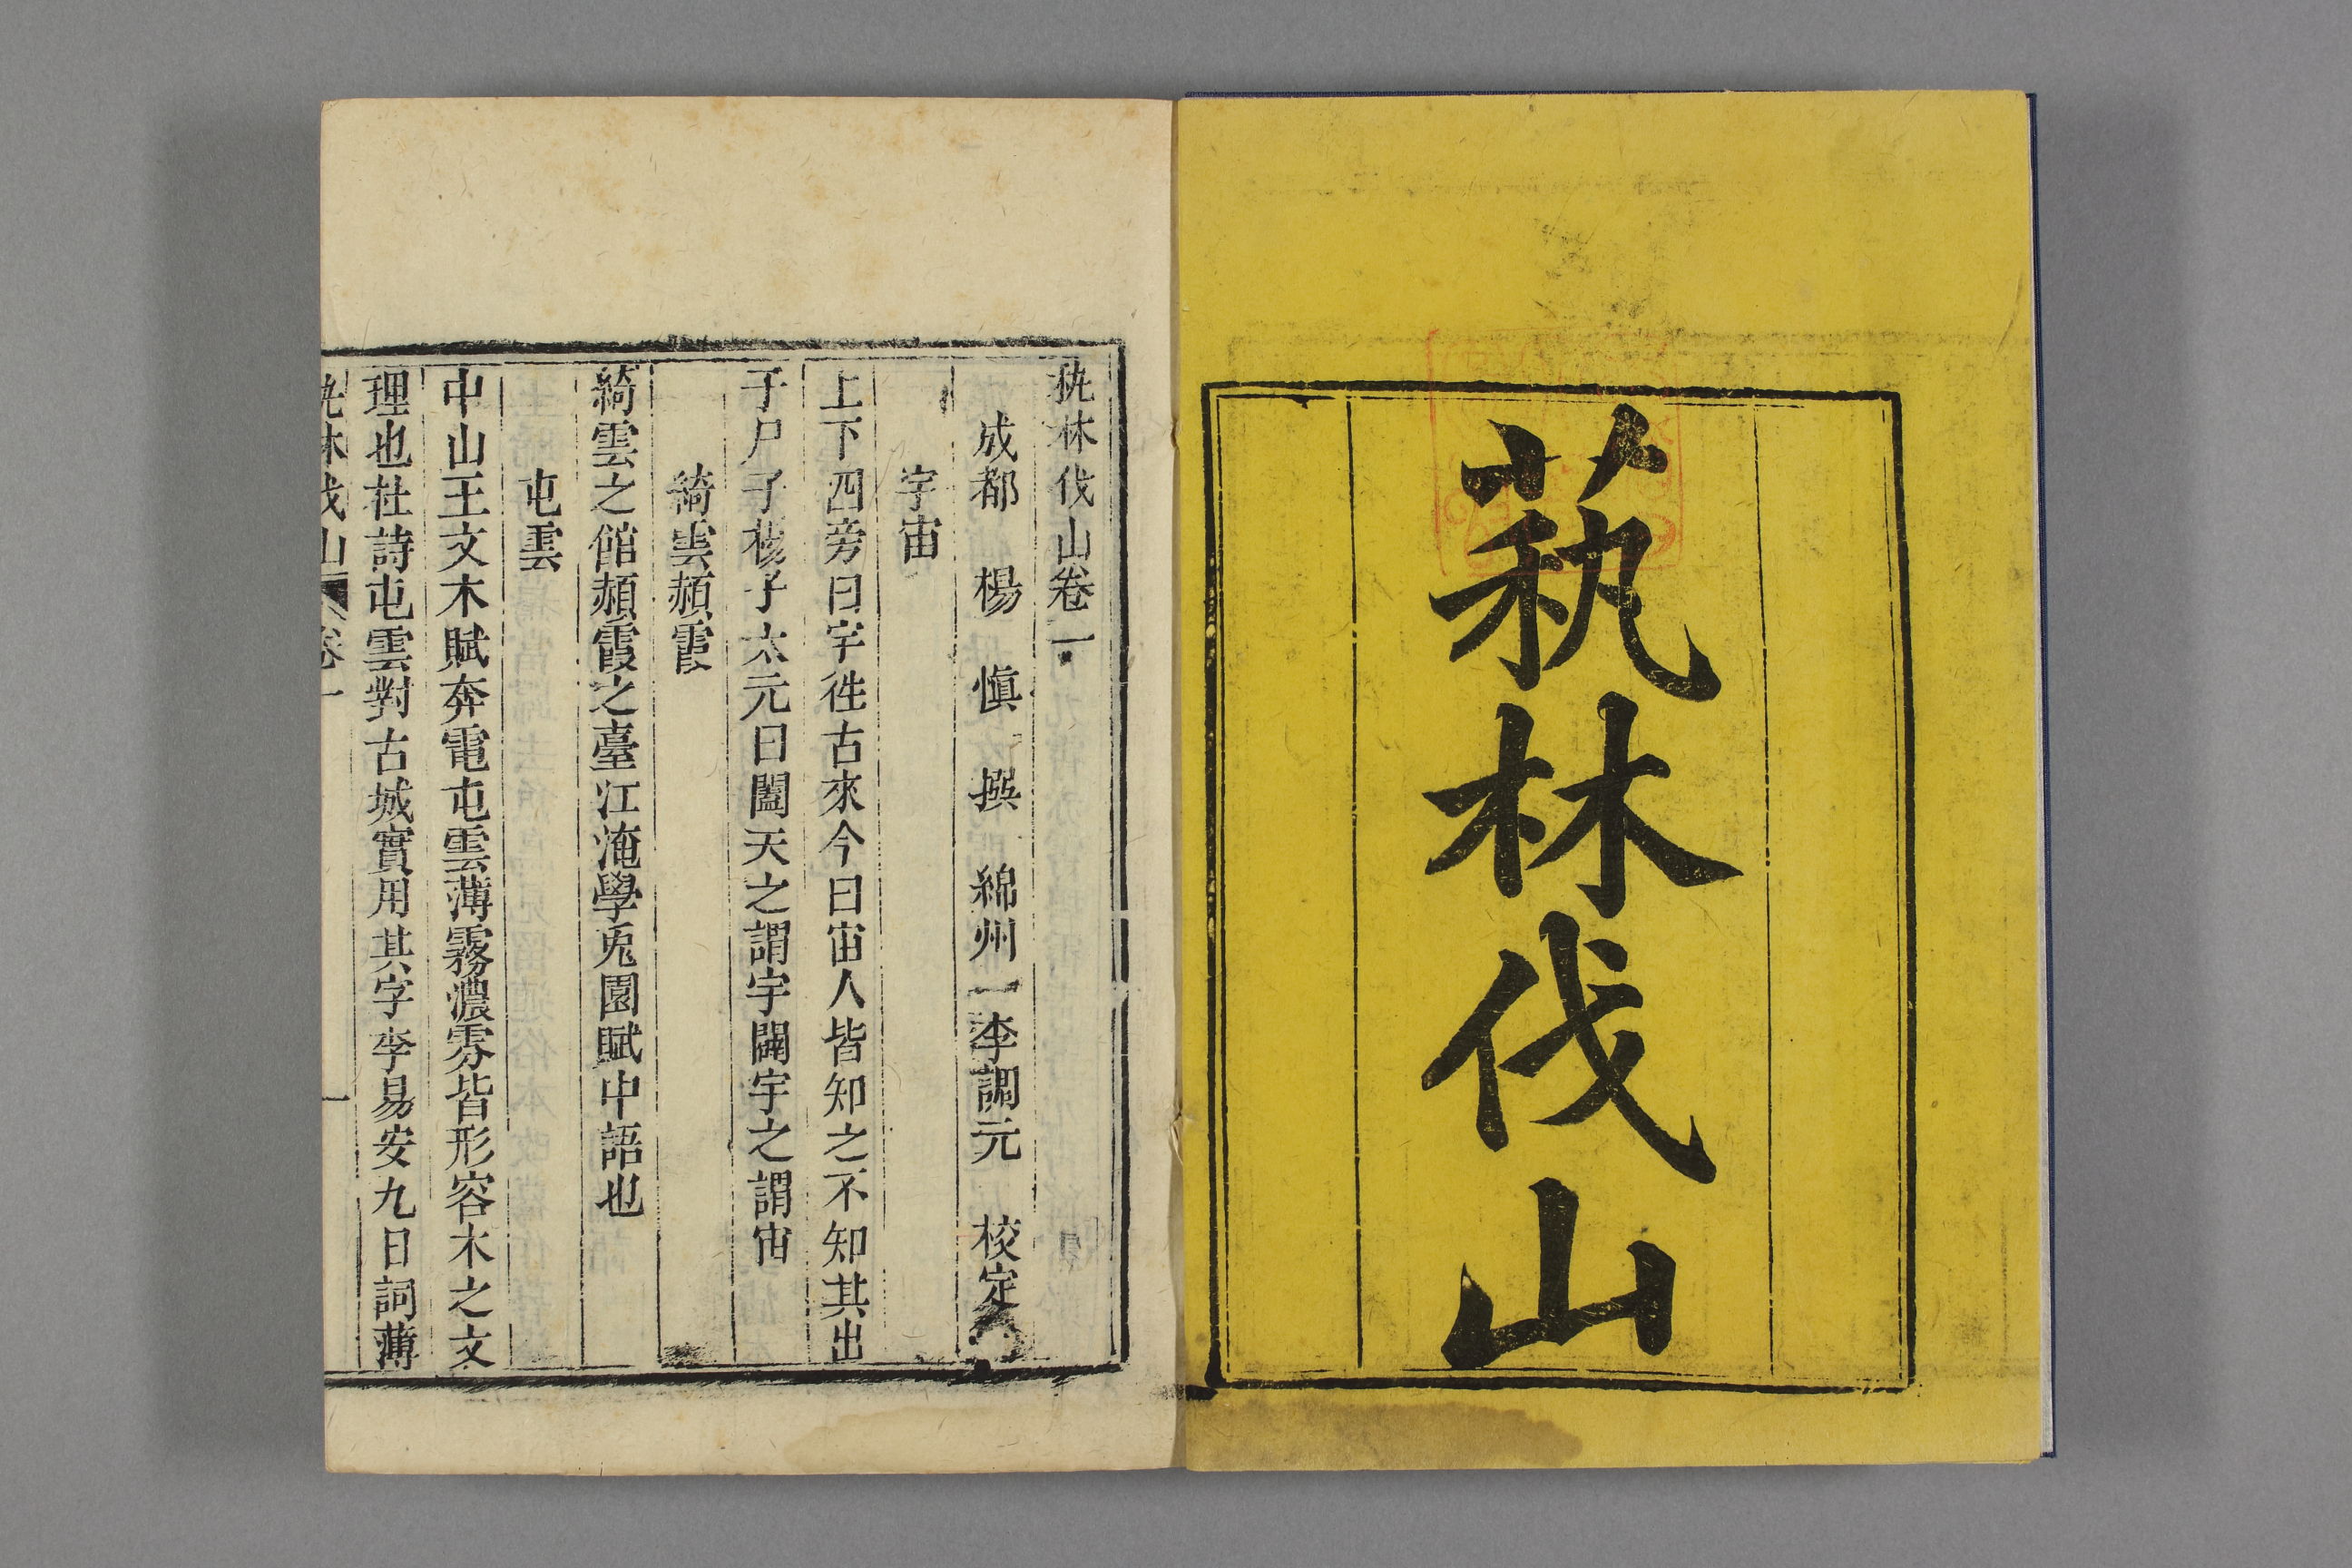 蓺林伐山
秇林伐山卷一
成都 楊 慎 撰 綿州 李調元 校定
宇宙
上下四旁曰宇徃古來今曰宙人皆知之不知其出
于尸子楊子太元曰闔天之謂宇闢宇之謂宙
綺雲頳霞
綺雲之館頳霞之臺江淹學兎園賦中語也
屯雲
中山王文木賦奔電屯雲薄霧濃雰皆形容木之文
理也杜詩屯雲對古城實用其字李易安九日詞薄
秇林伐山 卷一 一